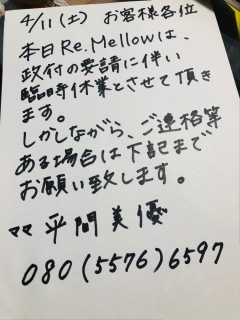 4/11(土) お客様各位
本日Re.Mellowは、
政府の要請に伴い
臨時休業とさせて頂き
ます。
しかしながら、ご連絡等
ある場合は下記まで
お願い致します。
ママ 平間美優
080(5576)6597